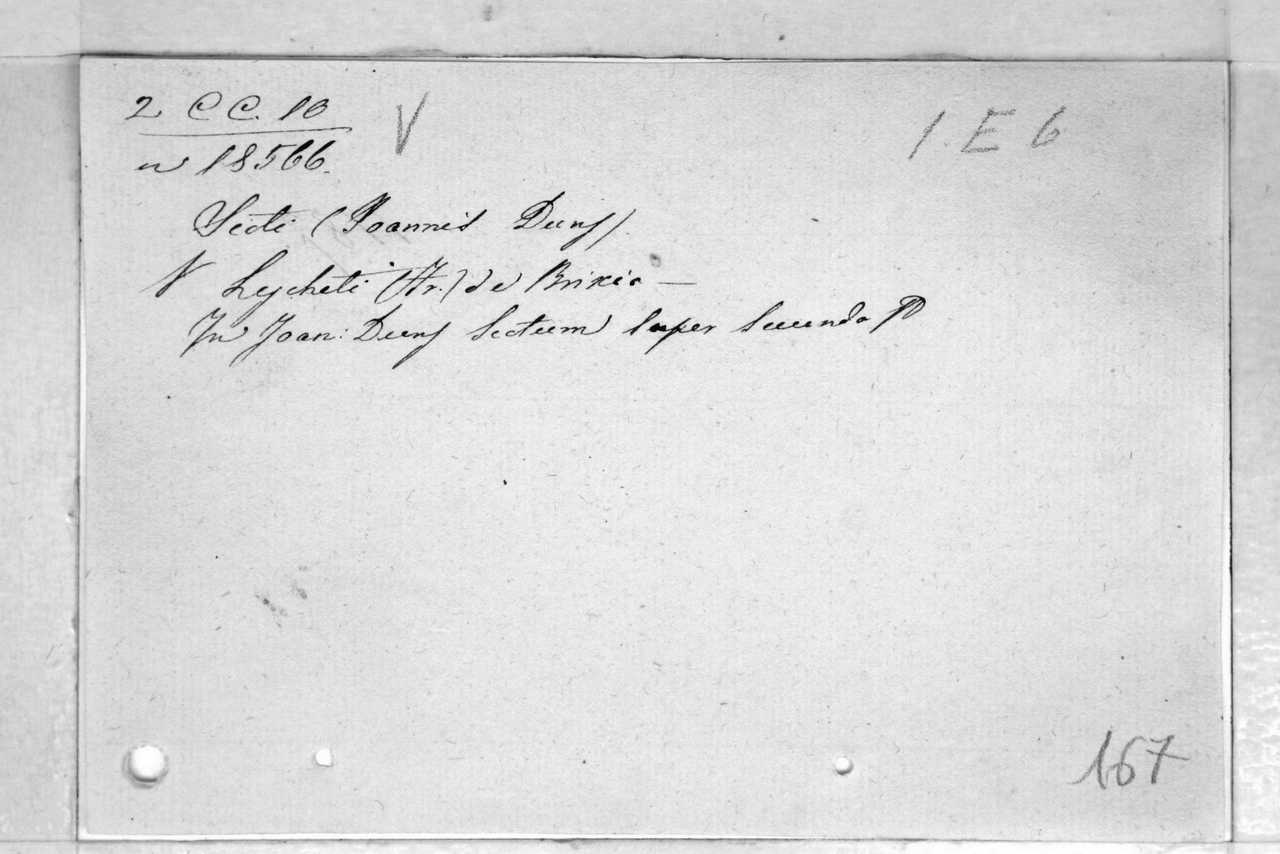 2 C C. 10 V 1. E 6
n 18566.
Scoti (Joannis Duns)
V Lycheti (Fr.) de Brixia —
In Joan: Duns Scotum super Secundo
167